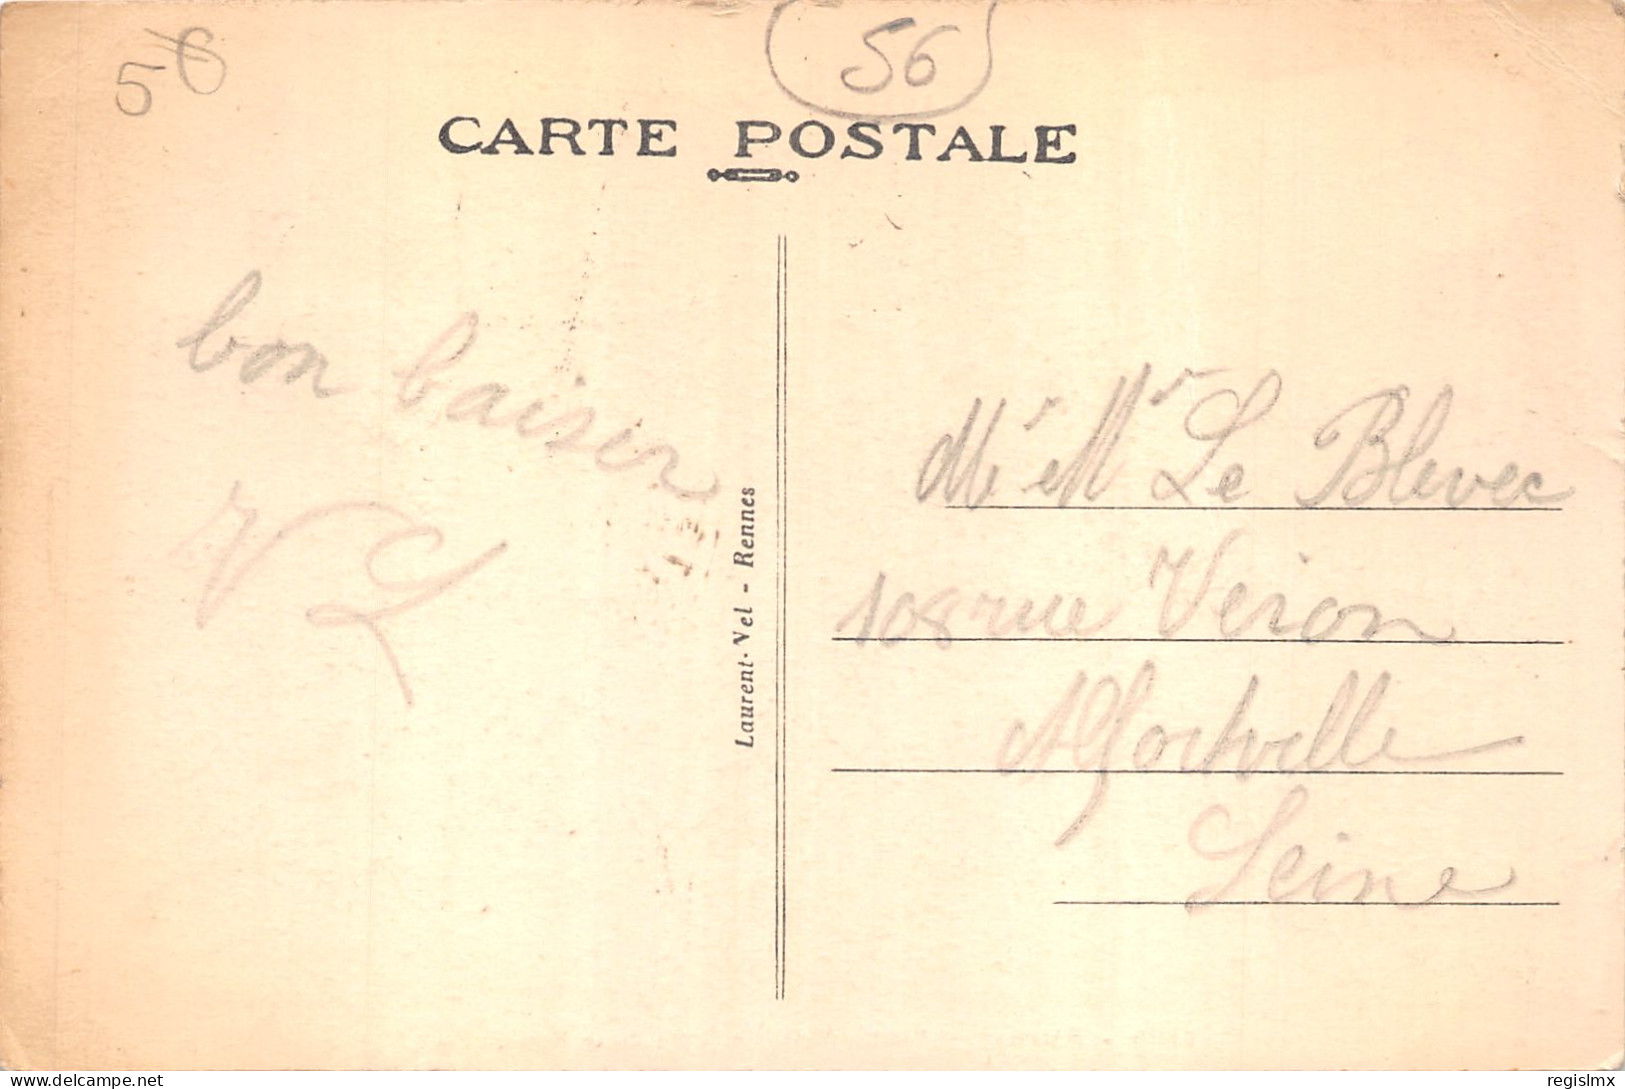 56
56
CARTE POSTALE
bon baiser
V L
Laurent-Vel - Rennes
Mr et Mr Le Blevec
108 rue Veron
Alfortville
Seine
delcampe.net
regislmx